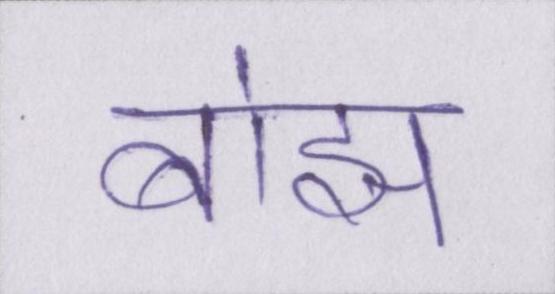 बांझ